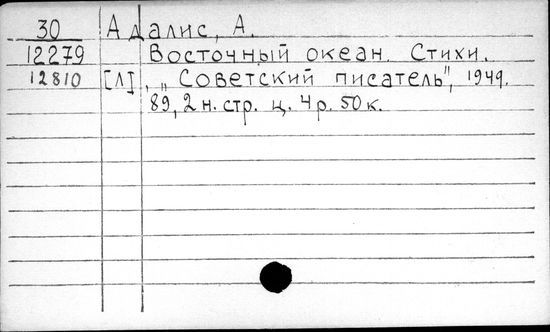 30 Адалис, А.
12279 Восточный океан. Стихи.
12810 [Л], „Советский писатель", 1949.
89, 2 н. стр. ц. 4 р. 50 к.